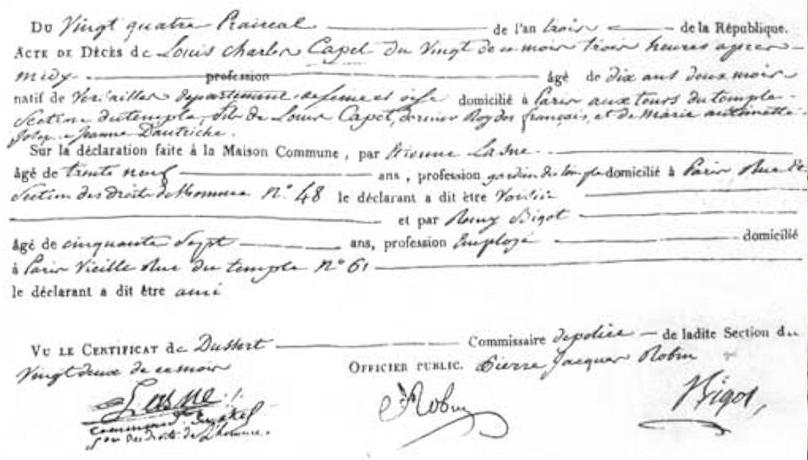 Du Vingt quatre Prairial de l'an trois de la République.
Acte de Décès de Louis Charles Capet du Vingt de ce mois trois heures apres
midy profession âgé de dix ans deux mois
natif de Versailles departement de seine et oise domicilié à Paris aux tours du temple
Section du temple, fils de Louis Capet, dernier Roy des français, et de Marie antoinette
Josephe Jeanne Dautriche.
Sur la déclaration faite à la Maison Commune, par Etienne Lasne
âgé de trente neuf ans, profession gardien du temple domicilié à Paris, Rue et
Section des droits de lhomme N.° 48 le déclarant a dit être Voisin
et par Remy Bigot
âgé de cinquante Sept ans, profession Employé domicilié
à Paris Vieille Rue du temple N° 61
le déclarant a dit être ami
Vu le Certificat de Dussert Commissaire de police de ladite Section du
Vingt deux de ce mois Officier Public. Pierre Jacques Robin
Lasne Robin Bigot,
Son des droits de Lhomme.